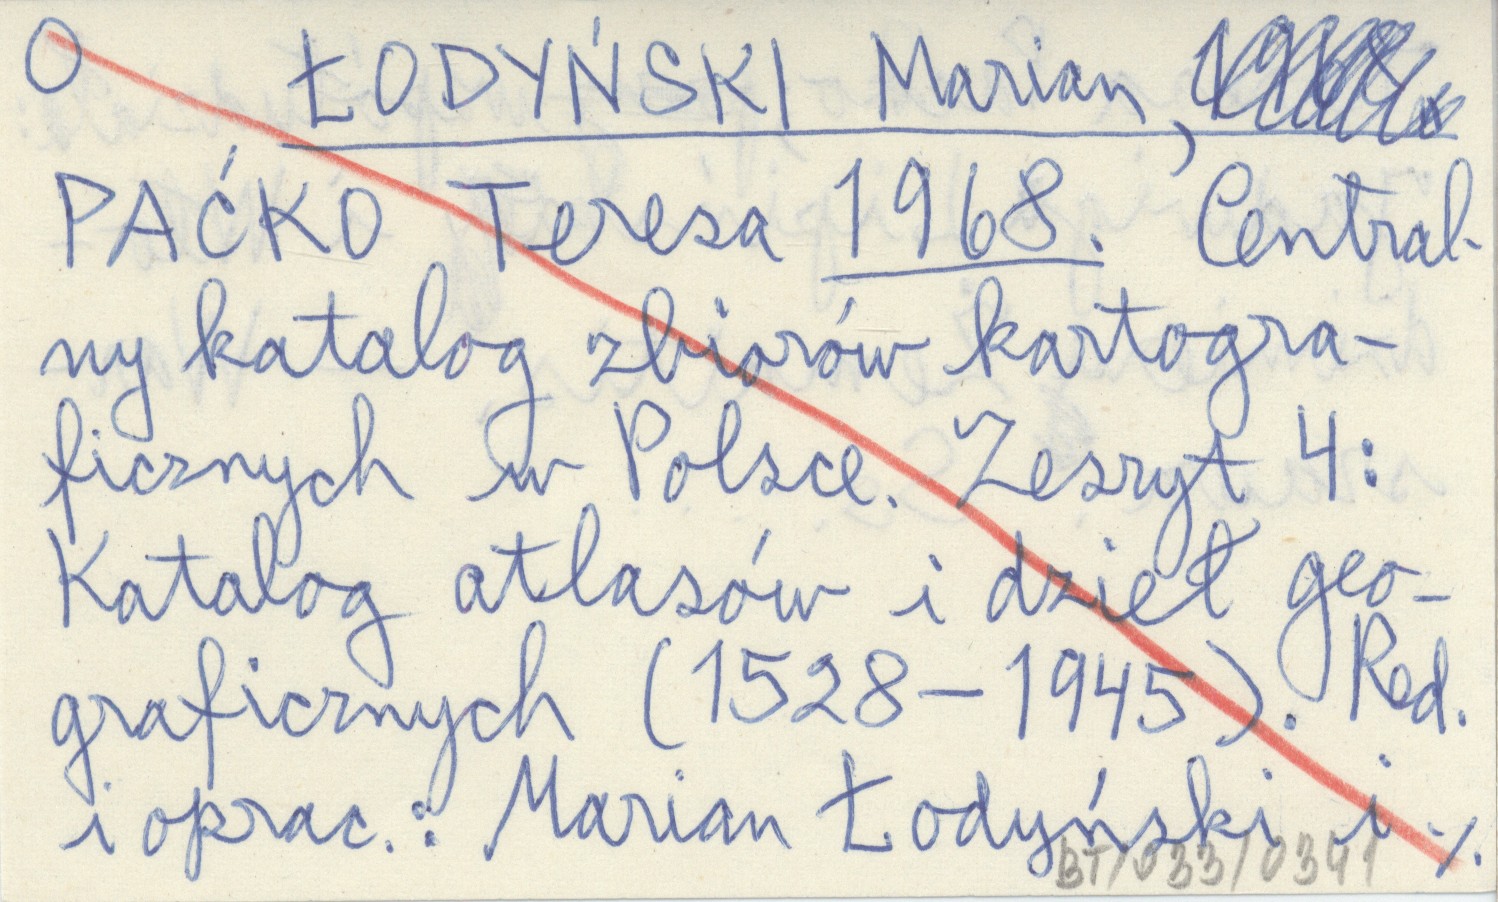 O ŁODYŃSKI Marian, 1968.
PAĆKO Teresa 1968. Central-
ny katalog zbiorów kartogra-
ficznych w Polsce. Zeszyt 4:
Katalog atlasów i dzieł geo-
graficznych (1528-1945). Red.
i oprac.: Marian Łodyński i ./.
BT/033/0341